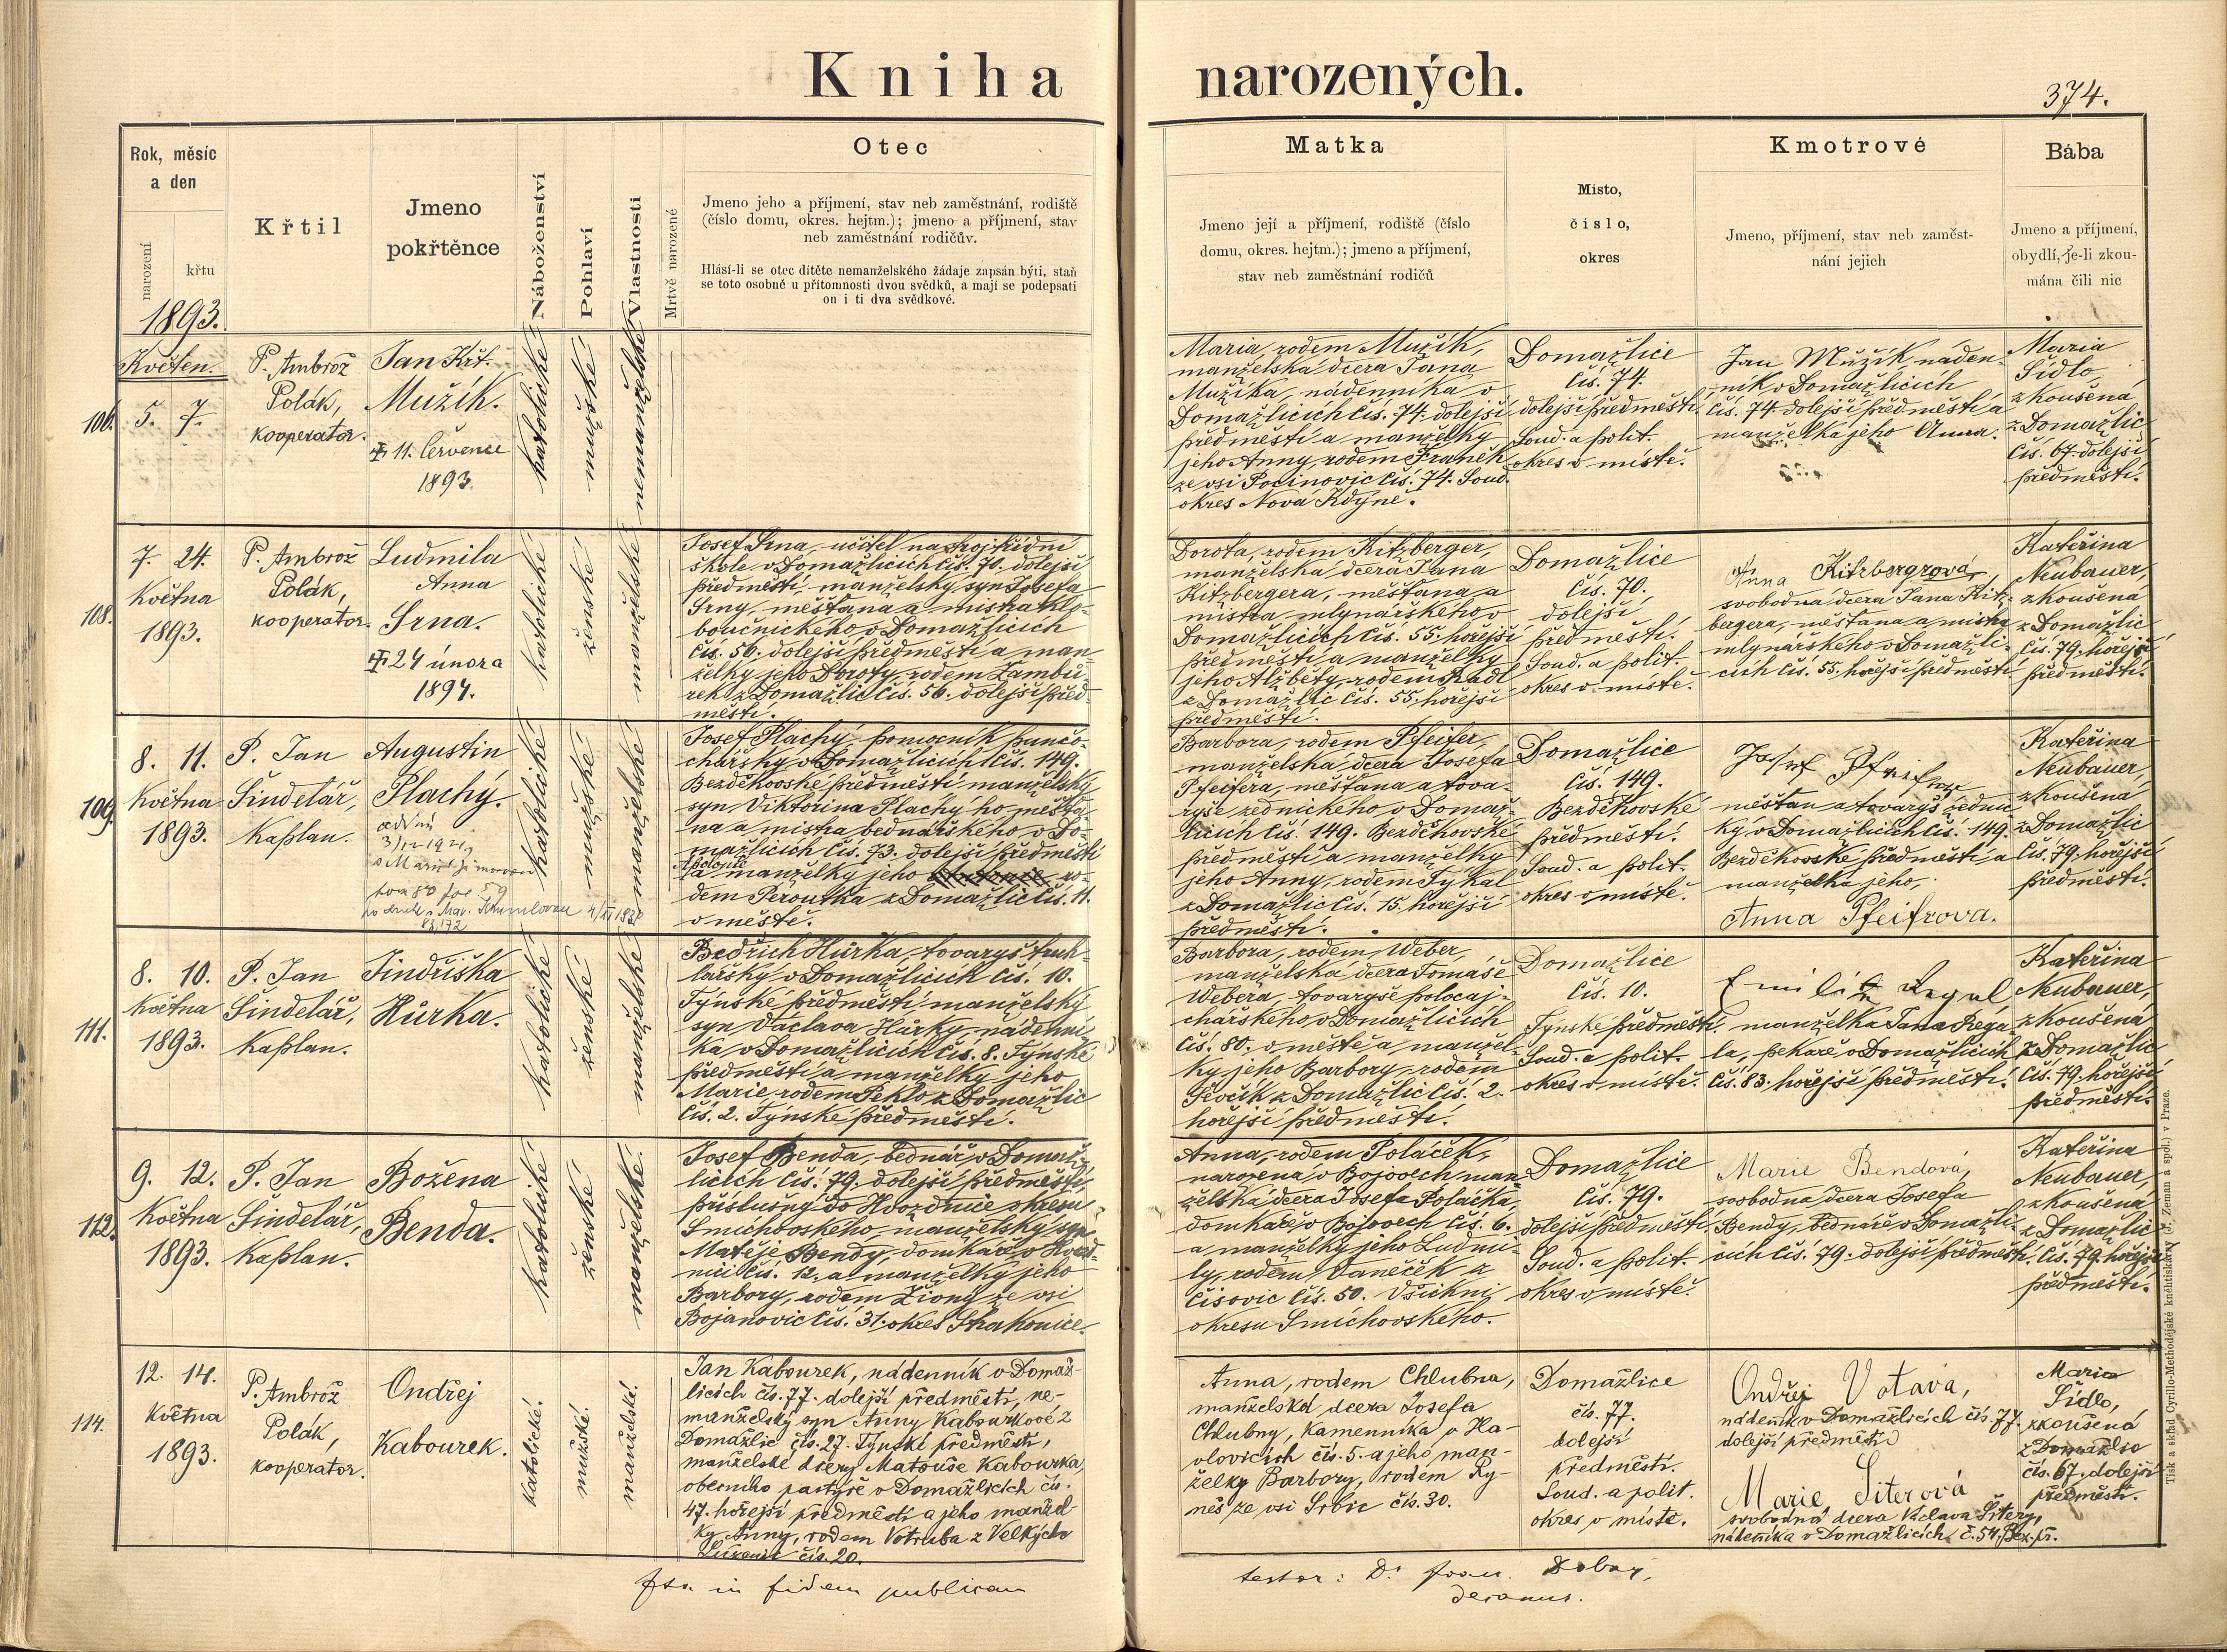 Kniha narozených.
374.
Rok, měsíc
a den
narození
křtu
1893.
Křtil
Jmeno
pokřtěnce
Náboženství
Pohlaví
Vlastnosti
Mrtvě narozené
Otec
Jmeno jeho a příjmení, stav neb zaměstnání, rodiště
(číslo domu, okres. hejtm.); jmeno a příjmení, stav
neb zaměstnání rodičův.
Hlásí-li se otec dítěte nemanželského žádaje zapsán býti, staň
se toto osobně u přítomnosti dvou svědků, a mají se podepsati
on i ti dva svědkové.
Matka
Jmeno její a příjmení, rodiště (číslo
domu, okres. hejtm.); jmeno a příjmení,
stav neb zaměstnání rodičů
Místo,
číslo,
okres
Kmotrové
Jmeno, příjmení, stav neb zaměst-
nání jejich
Bába
Jmeno a příjmení,
obydlí, je-li zkou-
mána čili nic
Květen.
106.
5. 7.
P. Ambrož
Polák,
kooperator.
Jan Křt.
Mužík.
11. července
1893.
katolické
mužské
nemanželské
Maria, rodem Mužík,
manželská dcera Jana
Mužíka, nádenníka v
Domažlicích čís. 74. dolejší
předměstí a manželky
jeho Anny, rodem Franěk
ze vsi Pocinovic čís. 74. Soud.
okres Nová Kdýně.
Domažlice
čís. 74.
dolejší předměstí.
Soud. a polit.
okres v místě.
Jan Mužík náden-
ník v Domažlicích
čís. 74 dolejší předměstí a
manželka jeho Anna.
Maria
Šídlo,
zkoušená
z Domažlic
čís. 67. dolejší
předměstí.
108.
7. 24.
Května
1893.
P. Ambrož
Polák,
kooperator.
Ludmila
Anna
Srna.
24 února
1894.
katolické
ženské
manželské
Josef Srna, učitel na trojtřídní
škole v Domažlicích čís. 70. dolejší
předměstí, manželský syn Josefa
Srny, měšťana a mistra klo-
boučnického v Domažlicích
čís. 56. dolejší předměstí a man-
želky jeho Doroty, rodem Zambů-
rek z Domažlic čís. 56. dolejší před-
městí.
Dorota, rodem Kitzberger,
manželská dcera Jana
Kitzbergera, měšťana a
mistra mlynářského v
Domažlicích čís. 55. hořejší
předměstí a manželky
jeho Alžběty, rodem Kádl
z Domažlic čís. 55. hořejší
předměstí.
Domažlice
čís. 70.
dolejší
předměstí.
Soud. a polit.
okres v místě.
Anna Kitzbergrová,
svobodná dcera Jana Kitz-
bergera, měšťana a mistra
mlynářského v Domažli-
cích čís. 55. hořejší předměstí
Kateřina
Neubauer,
zkoušená
z Domažlic
čís. 79. hořejší
předměstí.
109.
8. 11.
Května
1893.
P. Jan
Šindelář,
Kaplan.
Augustin
Plachý.
3/12 1921
s Marií
tom 80 fol 59
po druhé s Mar.
83,172
katolické
mužské
manželské
Josef Plachý pomocník punčo-
chářský v Domažlicích čís. 149.
Bezděkovské předměstí, manželský
syn Viktorina Plachý'ho měšťa-
na a mistra bednářského v Do-
mažlicích čís. 73. dolejší předměstí
a manželky jeho ro-
dem Peroutka z Domažlic čís. 11.
v městě.
Barbora, rodem Pfeifer,
manželská dcera Josefa
Pfeifera, měšťana a tova-
ryše zednického v Domaž-
licích čís. 149. Bezděkovské
předměstí a manželky
jeho Anny, rodem Týkal
z Domažlic čís. 15. hořejší
předměstí.
Domažlice
čís. 149.
Bezděkovské
předměstí.
Soud. a polit.
okres v místě.
Josef Pfeifer
měšťan a tovaryš zednic-
ký v Domažlicích čís. 149.
Bezděkovské předměstí a
manželka jeho,
Anna Pfeifrova.
Kateřina
Neubauer,
zkoušená
z Domažlic
čís. 79. hořejší
předměstí.
111.
8. 10.
Května
1893.
P. Jan
Šindelář,
Kaplan.
Jindřiška
Hůrka.
katolické
ženské
manželské
Bedřich Hůrka, tovaryš truh-
lářský v Domažlicích čís. 10.
Týnské předměstí manželský
syn Václava Hůrky, nádenní-
ka v Domažlicích čís. 8. Týnské
předměstí a manželky jeho
Marie, rodem Peklo z Domažlic
čís. 2. Týnské předměstí.
Barbora, rodem Weber,
manželská dcera Tomáše
Webera, tovaryše
chářského v Domažlicích
čís. 80. v městě a manžel-
ky jeho Barbory, rodem
Ševčík z Domažlic čís. 2.
hořejší předměstí.
Domažlice
čís. 10.
Týnské předměstí.
Soud. a polit.
okres v místě.
Emilie Regal
manželka Jana Réga-
la, pekaře v Domažlicích
čís. 83. hořejší předměstí.
Kateřina
Neubauer,
zkoušená
z Domažlic
čís. 79. hořejší
předměstí.
112.
9. 12.
Května
1893.
P. Jan
Šindelář,
Kaplan.
Božena
Benda.
katolické
ženské
manželské
Josef Benda, bednář v Domaž-
licích čís. 79. dolejší předměstí,
příslušný do Hvozdnice okresu
Smíchovského, manželský syn
Matěje Bendy, domkáře v Hvozd-
nici čís. 12. a manželky jeho
Barbory, rodem Ziong ze vsi
Bojanovic čís. 31. okres Strakonice.
Anna, rodem Poláček,
narozená v Bojovech, man-
želská dcera Josefa Poláčka,
domkáře v Bojovech čís. 6.
a manželky jeho Ludmi-
ly, rodem Vaněček z
Čisovic čís. 50. Všichni
okresu Smíchovského.
Domažlice
čís. 79.
dolejší předměstí.
Soud. a polit.
okres v místě.
Marie Bendová,
svobodná dcera Josefa
Bendy, bednáře v Domažli-
cích čís. 79. dolejší předměstí.
Kateřina
Neubauer,
zkoušená
z Domažlic
čís. 79. hořejší
předměstí.
114.
12. 14.
Května
1893.
P. Ambrož
Polák,
kooperator.
Ondřej
Kabourek.
katolické.
mužské.
manželské.
Jan Kabourek, nádenník v Domaž-
licích čís. 77. dolejší předměstí, ne-
manželský syn Anny Kabourkové z
Domažlic čís. 27. Týnské předměstí,
manželské dcery Matouše Kabourka,
obecního pastýře v Domažlicích čís.
47. hořejší předměstí a jeho manžel-
ky Anny, rodem Votruba z Velkých
čís. 20.
Anna, rodem Chlubna,
manželská dcera Josefa
Chlubny, Kamenníka v Ha-
lovicích čís. 5. a jeho man-
želky Barbory, rodem Ry-
neš ze vsi Srbic čís. 30.
Domažlice
čís. 77.
dolejší
předměstí.
Soud. a polit.
okres v místě.
Ondřej Votava,
nádeník v Domažlicích čís. 77.
dolejší předměstí
Marie Siterová
svobodná dcera Václava Šitery,
nádeníka v Domažlicích č. 54. Bez. př.
Maria
Šídlo,
zkoušená
z Domažlic
čís. 67. dolejší
předměstí.
in fidem publicam
testor: Dr.
decanus.
Tisk a sklad Cyrillo-Methodějské knihtiskárny (J. Zeman a spol.) v Praze.